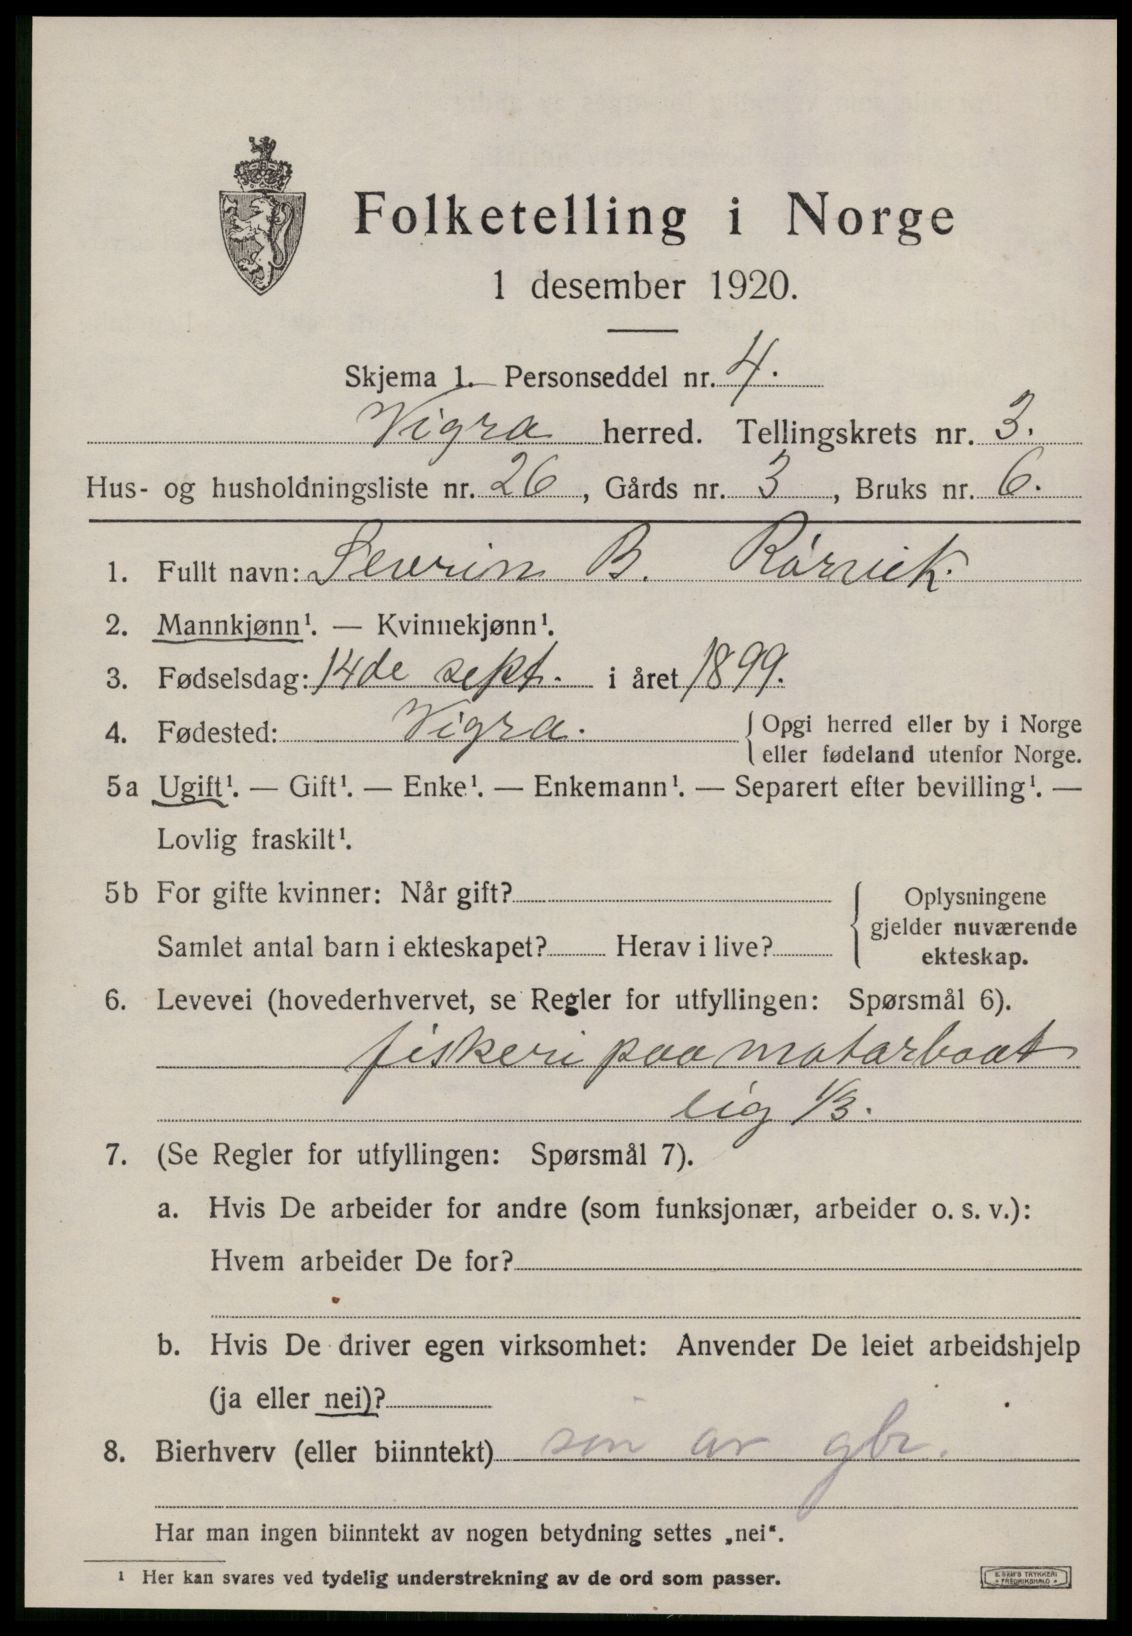 Folketelling i Norge
1 desember 1920.
Skjema 1. Personseddel nr. 4.
Vigra herred. Tellingskrets nr. 3.
Hus- og husholdningsliste nr. 26, Gårds nr. 3, Bruks nr. 6.
1. Fullt navn: Severin B. Rörvik.
2. Mannkjønn¹. — Kvinnekjønn¹.
3. Fødselsdag: 14de sept. i året 1899.
4. Fødested: Vigra. Opgi herred eller by i Norge
eller fødeland utenfor Norge.
5a Ugift¹. — Gift¹. — Enke¹. — Enkemann¹. — Separert efter bevilling¹. —
Lovlig fraskilt¹.
5b For gifte kvinner: Når gift?
Samlet antal barn i ekteskapet? Herav i live?
Oplysningene
gjelder nuværende
ekteskap.
6. Levevei (hovederhvervet, se Regler for utfyllingen: Spørsmål 6).
fiskeri paa motorbaat
eig 1/3.
7. (Se Regler for utfyllingen: Spørsmål 7).
a. Hvis De arbeider for andre (som funksjonær, arbeider o. s. v.):
Hvem arbeider De for?
b. Hvis De driver egen virksomhet: Anvender De leiet arbeidshjelp
(ja eller nei)?
8. Bierhverv (eller biinntekt) søn av gbr.
Har man ingen biinntekt av nogen betydning settes „nei“.
¹ Her kan svares ved tydelig understrekning av de ord som passer.